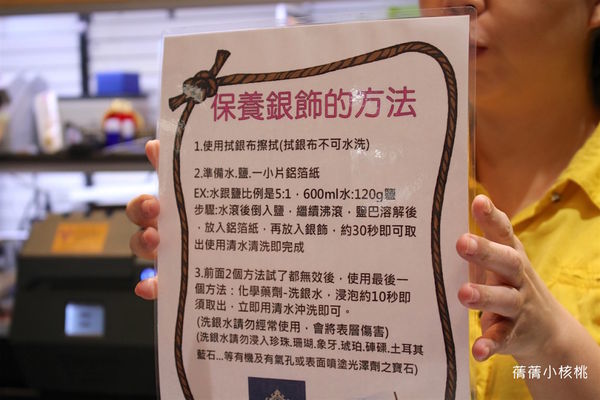 保養銀飾的方法
1.使用拭銀布擦拭(拭銀布不可水洗)
2.準備水.鹽.一小片鋁箔紙
EX:水跟鹽比例是5:1，600ml水:120g鹽
步驟:水滾後倒入鹽，繼續沸滾，鹽巴溶解後
，放入鋁箔紙，再放入銀飾，約30秒即可取
出使用清水清洗即完成
3.前面2個方法試了都無效後，使用最後一
個方法：化學藥劑-洗銀水，浸泡約10秒即
須取出，立即用清水沖洗即可。
(洗銀水請勿經常使用，會將表層傷害)
(洗銀水請勿浸入珍珠.珊瑚.象牙.琥珀.硨磲.土耳其
藍石...等有機及有氣孔或表面噴塗光澤劑之寶石)
蒨蒨小核桃